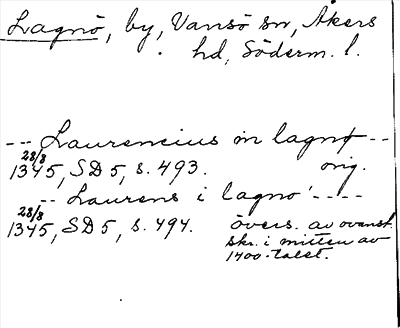 Lagnö, by, Vansö sn, Åkers
hd, Söderm. l.
--- Laurencius in lagnø---
28/8 1345, SD 5, s. 493. orig.
-- Laurens i lagno ----
28/8 1345, SD 5, s. 494. övers. av ovanst.
skr. i mitten av
1400-talet.